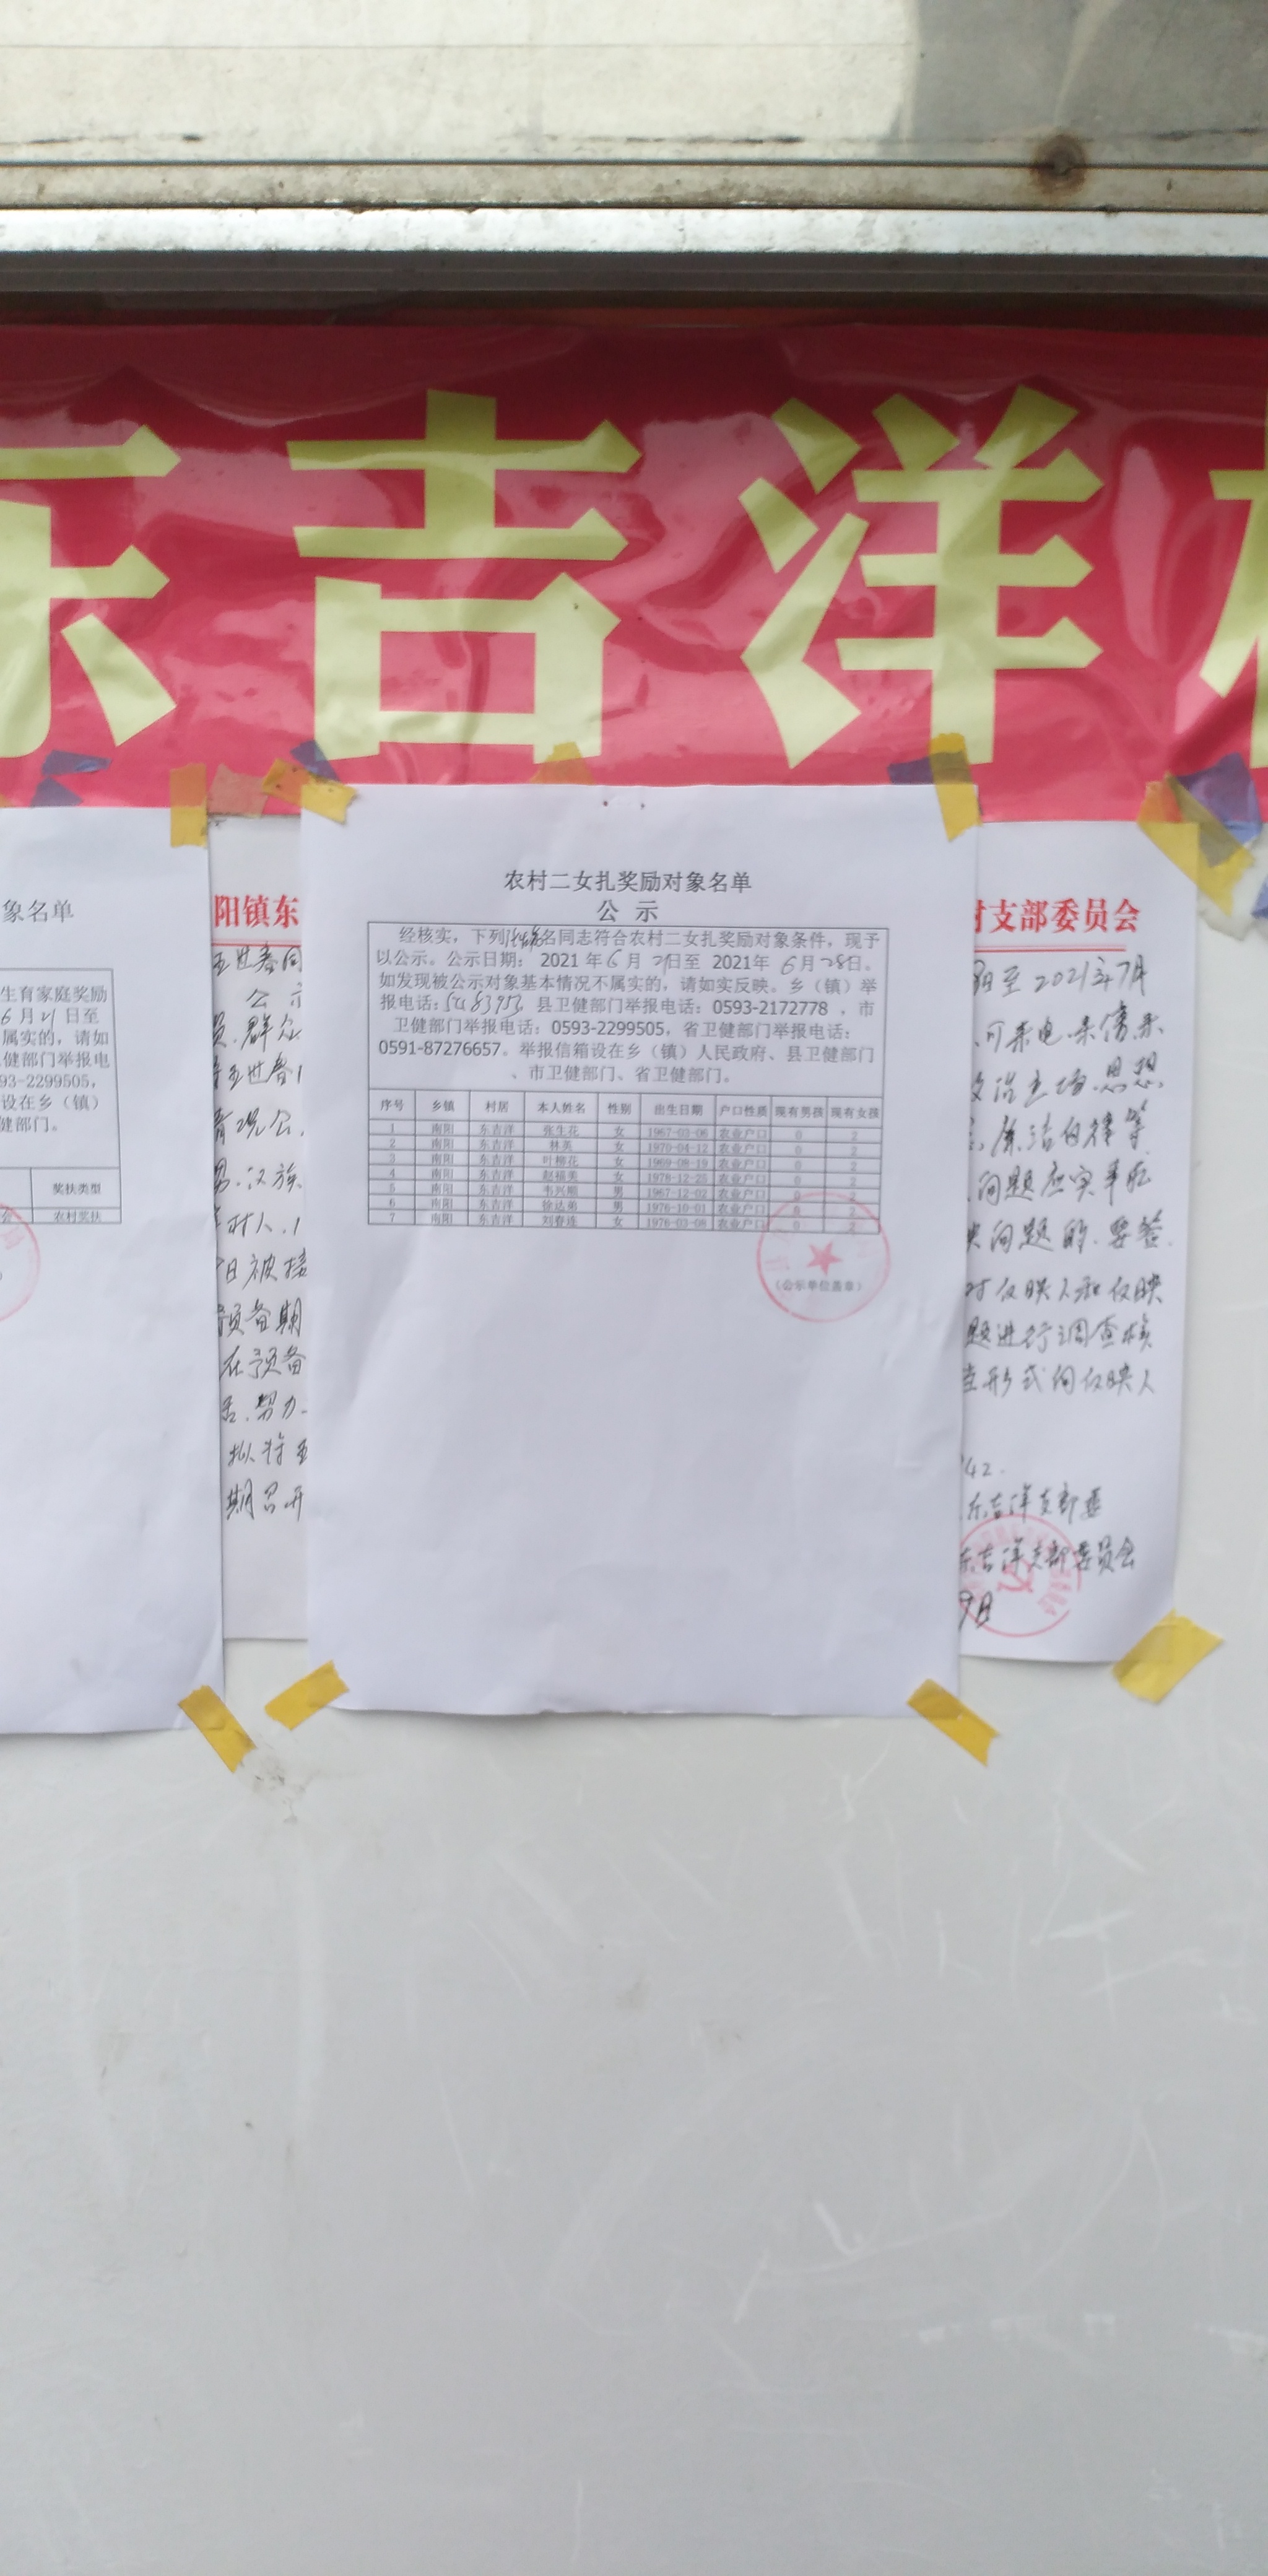 东吉洋村
象名单
生育家庭奖励
6月21日至
属实的，请如
健部门举报电
93-2299505，
设在乡（镇）
健部门。
奖扶类型
农村奖扶
阳镇东
公示
员.群众
男.汉族
村人.
日被接
预备期
在预备
努力.
拟将
期召开
农村二女扎奖励对象名单
公 示
经核实，下列 名同志符合农村二女扎奖励对象条件，现予
以公示。公示日期： 2021 年6月 21日至 2021年 6月28日。
如发现被公示对象基本情况不属实的，请如实反映。乡（镇）举
报电话： ，县卫健部门举报电话：0593-2172778 ，市
卫健部门举报电话：0593-2299505，省卫健部门举报电话：
0591-87276657。举报信箱设在乡（镇）人民政府、县卫健部门
、市卫健部门、省卫健部门。
序号 乡镇 村居 本人姓名 性别 出生日期 户口性质 现有男孩 现有女孩
1 南阳 东吉洋 张生花 女 1967-03-06 农业户口 0 2
2 南阳 东吉洋 林英 女 1970-04-12 农业户口 0 2
3 南阳 东吉洋 叶柳花 女 1969-08-19 农业户口 0 2
4 南阳 东吉洋 赵福美 女 1978-12-25 农业户口 0 2
5 南阳 东吉洋 韦兴顺 男 1967-12-02 农业户口 0 2
6 南阳 东吉洋 徐达弟 男 1976-10-01 农业户口 0 2
7 南阳 东吉洋 刘春连 女 1976-03-08 农业户口 0 2
（公示单位盖章）
村支部委员会
阳至 2021年7月
.可来电.来信.来
政治立场.思想
.廉洁自律等
问题应实事
问题的.要签
对反映人和反映
题进行调查核
形式向反映人
42.
东吉洋支部委
东吉洋支部委员会
9日